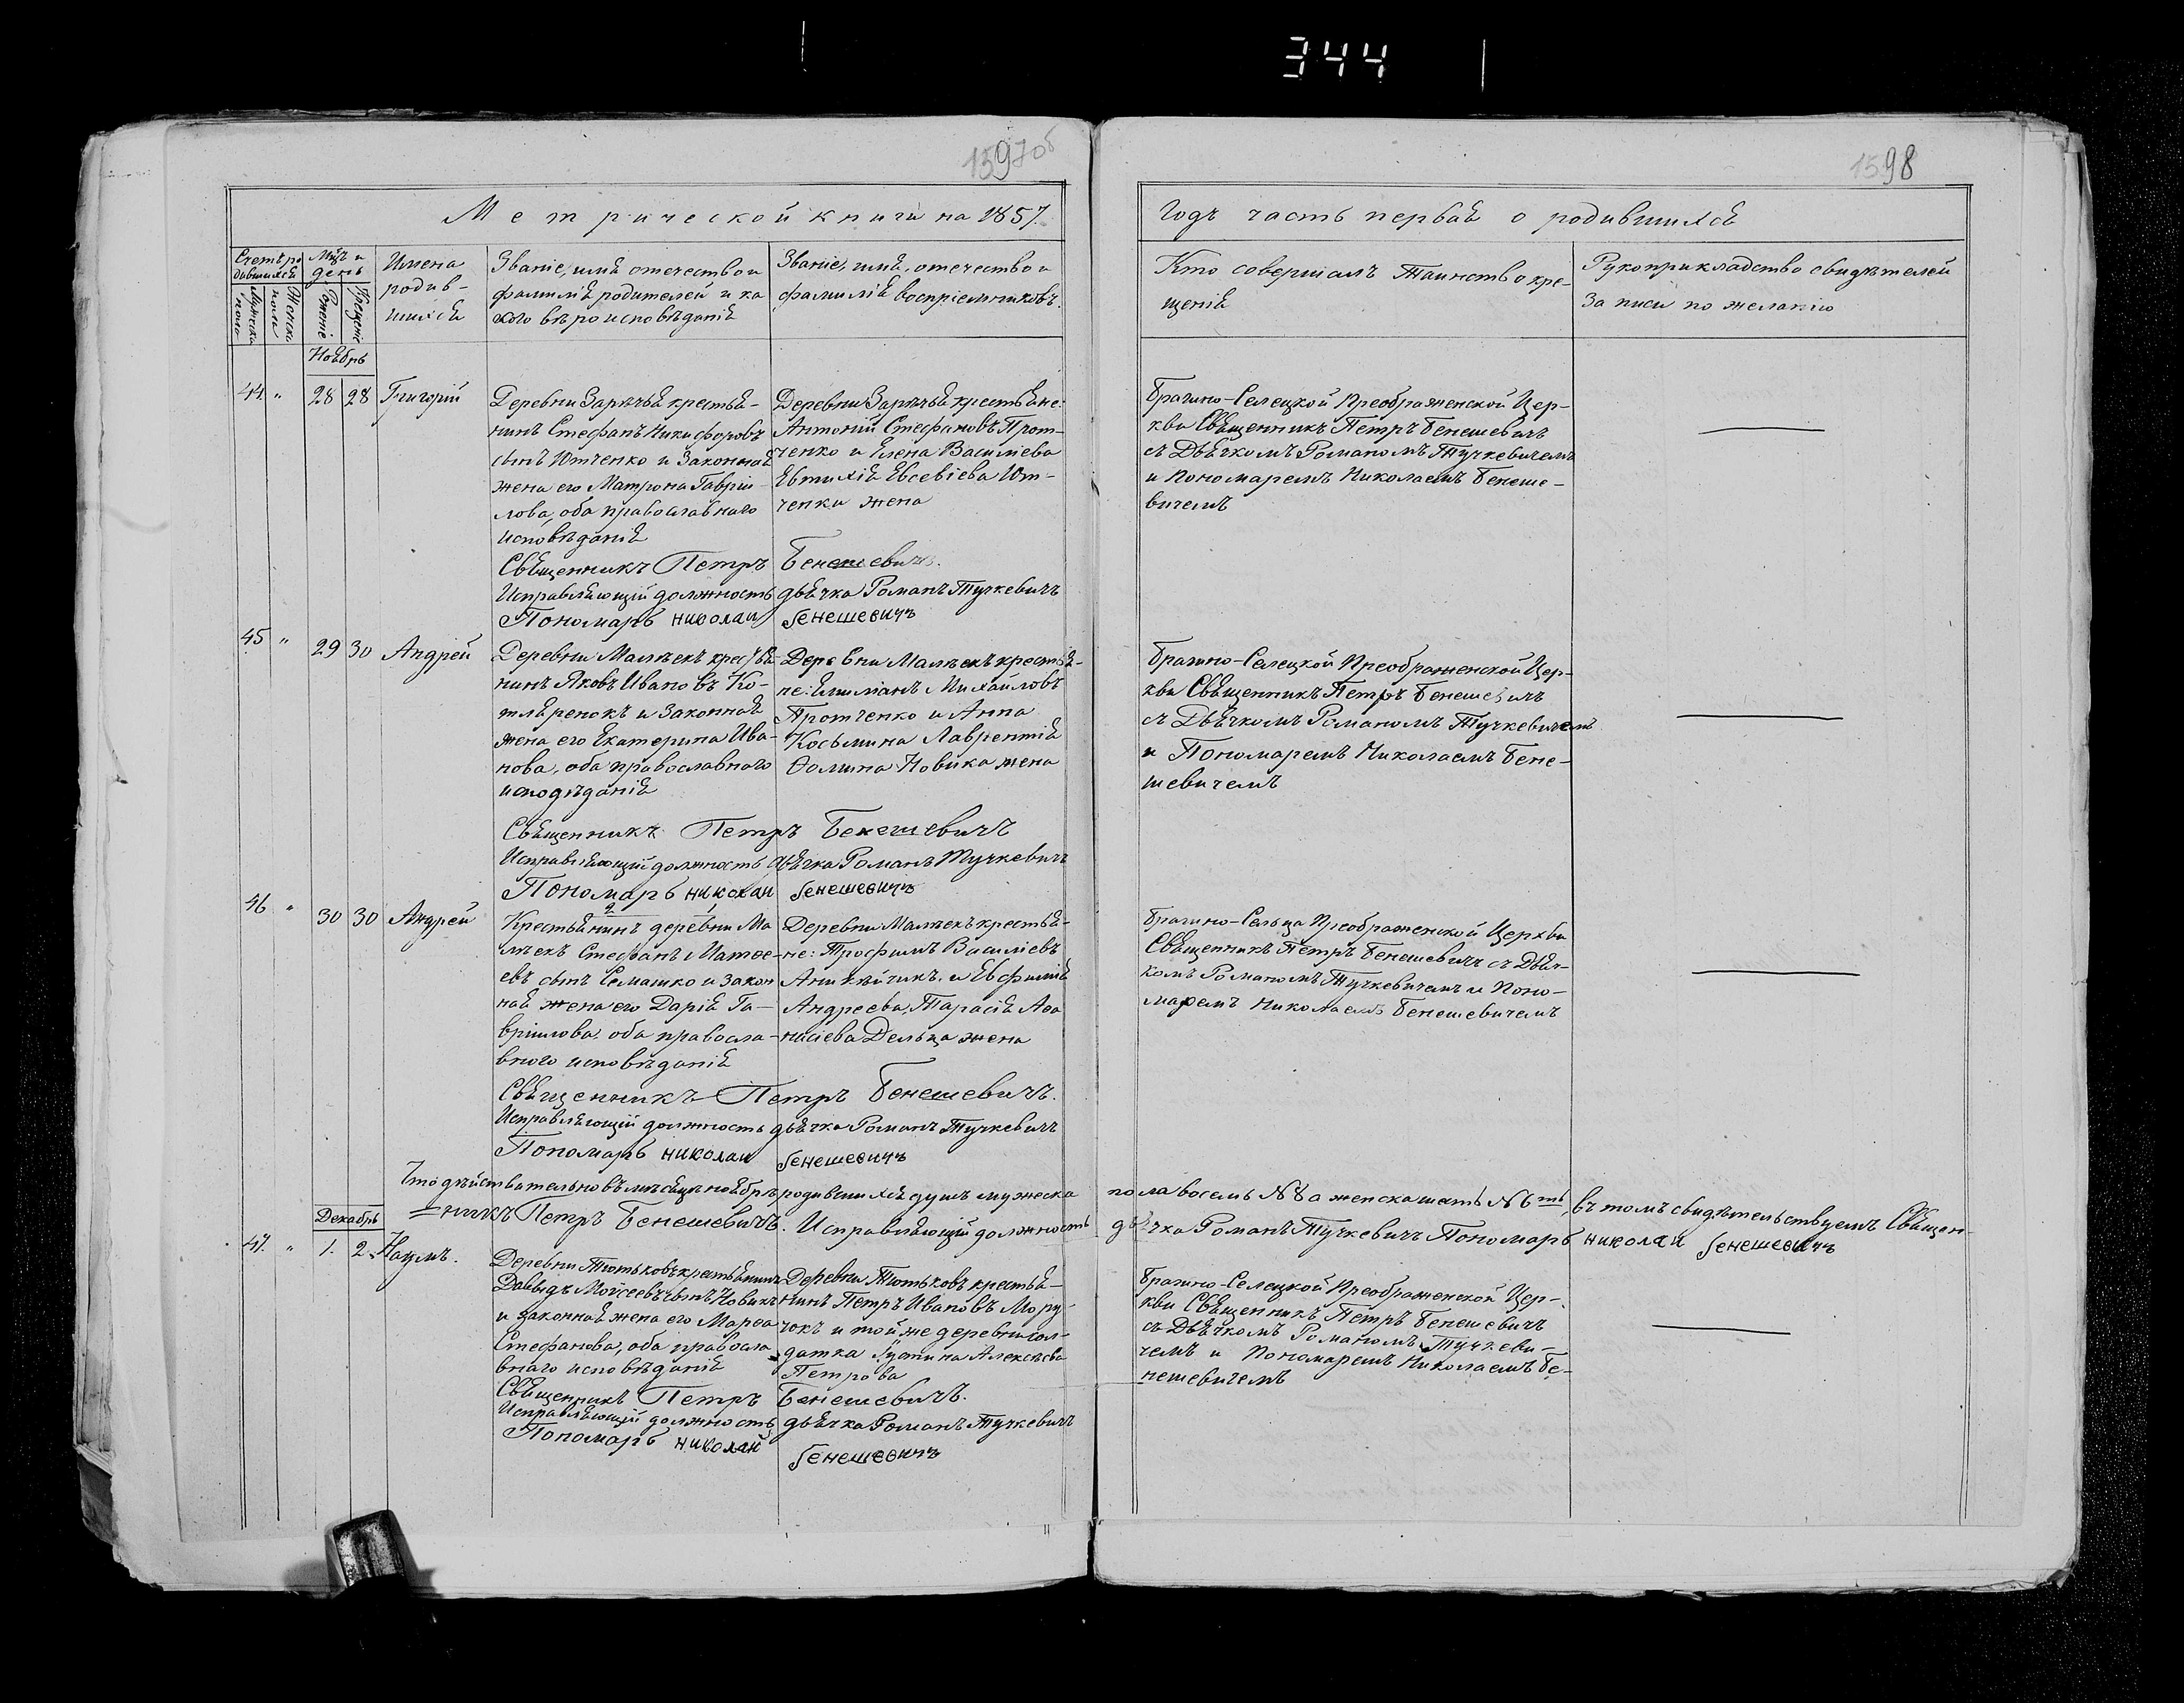 344
1597об
1598
Метрической книги на 1857.
Годъ часть первая о родившихся
Счетъ ро
дившихся
Мужеска
пола
Женска
пола
Мѣцъ и
день
Рожденіе
Крещеніе
Имена
родив-
шихся
Званіе, имя отечество и
фамилія родителей и ка
кого вѣроисповѣданія
Званіе, имя, отечество и
фамилія воспріемниковъ.
Кто совершалъ таинство кре-
щенія
Рукоприкладство свидѣтелей
записи по желанію
Ноябрь
44 " 28 28 Григорій
Деревни Зарѣчья крестья-
нинъ Стефанъ Никифоровъ
сынъ Ютченко и законная
жена его Матрона Гаврiи-
лова, оба православнаго
исповѣданія
Деревни Зарѣчья крестьяне:
Антоній Стефановъ Прот-
ченко и Елена Василіева
Евтихія Евсевіева Ют-
ченки жена
Брагино-Селецкой Преображенской Цер-
кви Священникъ Петръ Бенешевичъ
съ Дьячкомъ Романомъ Тучкевичемъ
и Пономаремъ Николаемъ Бенеше-
вичемъ
Священникъ Петръ Бенешевичъ.
Исправляющій должность дьячка Романъ Тучкевичъ
Пономарь николаи бенешевичъ
45 " 29 30 Андрей
Деревни Малѣекъ крестья-
нинъ Яковъ Ивановъ Ко-
тляренокъ и законная
жена его Екатерина Ива-
нова, оба православнаго
исповѣданія
Деревни Малѣекъ крестья-
не: Емиліанъ Михайловъ
Протченко и Анна
Косьмина Лаврентія
Ѳомина Новика жена
Брагино-Селецкой Преображенской Цер-
кви Священникъ Петръ Бенешевичъ
съ Дьячкомъ Романомъ Тучкевичемъ
и Пономаремъ Николаемъ Бене-
шевичемъ
Священникъ Петръ Бенешевичъ
Исправляющій должность дьячка Романъ Тучкевичъ
Пономарь николаи бенешевичъ
46 " 30 30 Андрей
Крестьянинъ деревни Ма
лѣекъ Стефанъ Матѳе-
евъ сынъ Семашко и закон
ная жена его Дарія Га-
вріилова оба правосла-
внаго исповѣданія
Деревни Малѣекъ крестья-
не: Трофимъ Василіевъ
Аникѣйчикъ и Евфимія
Андреева, Тарасія Аѳа
насіева Дельца жена
Брагино-Сельца Преображенской Церкви
Священникъ Петръ Бенешевичъ съ Дьяч-
комъ Романомъ Тучкевичемъ и Поно-
маремъ Николаемъ Бенешевичемъ
Священникъ Петръ Бенешевичъ.
Исправляющій должность дьячка Романъ Тучкевичъ
Пономарь николаи бенешевичъ
Что дѣйствительно въ мѣсяцѣ ноябрѣ родившихся душъ мужеска пола восемь №8 а женска шесть №6ть, въ томъ свидѣтельствуемъ Священ-
=никъ Петръ Бенешевичъ. Исправляющій должность дьячка Романъ Тучкевичъ Пономарь николаи бенешевичъ
Декабрь
47. " 1. 2. Наумъ.
Деревни Тютьковъ крестьянинъ
Давыдъ Мойсеевъ сынъ Новикъ
и законная жена его Марѳа
Стефанова, оба правосла
внаго исповѣданія
Деревни Тютьковъ крестья-
нинъ Петръ Ивановъ Мору-
чокъ и той же деревни сол-
датка Іустина Алексѣева
Петрова
Брагино-Селецкой Преображенской Цер-
кви Священникъ Петръ Бенешевичъ
съ Дьячкомъ Романомъ Тучкеви-
чемъ и Пономаремъ Николаемъ Бе-
нешевичемъ
Священникъ Петръ Бенешевичъ.
Исправляющій должность дьячка Романъ Тучкевичъ
Пономарь николай бенешевичъ